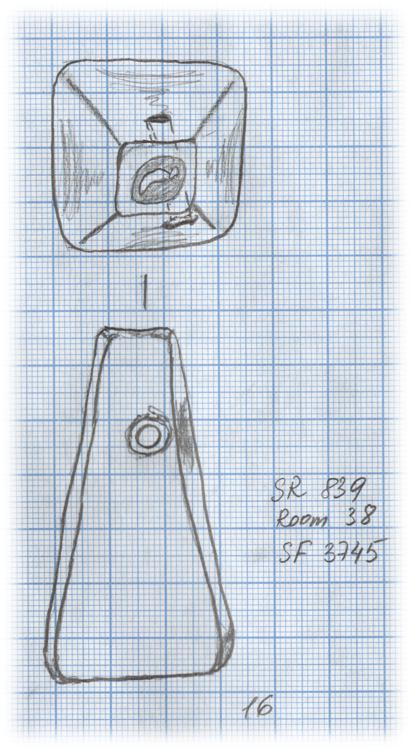 SR 839
Room 38
SF 3745
16